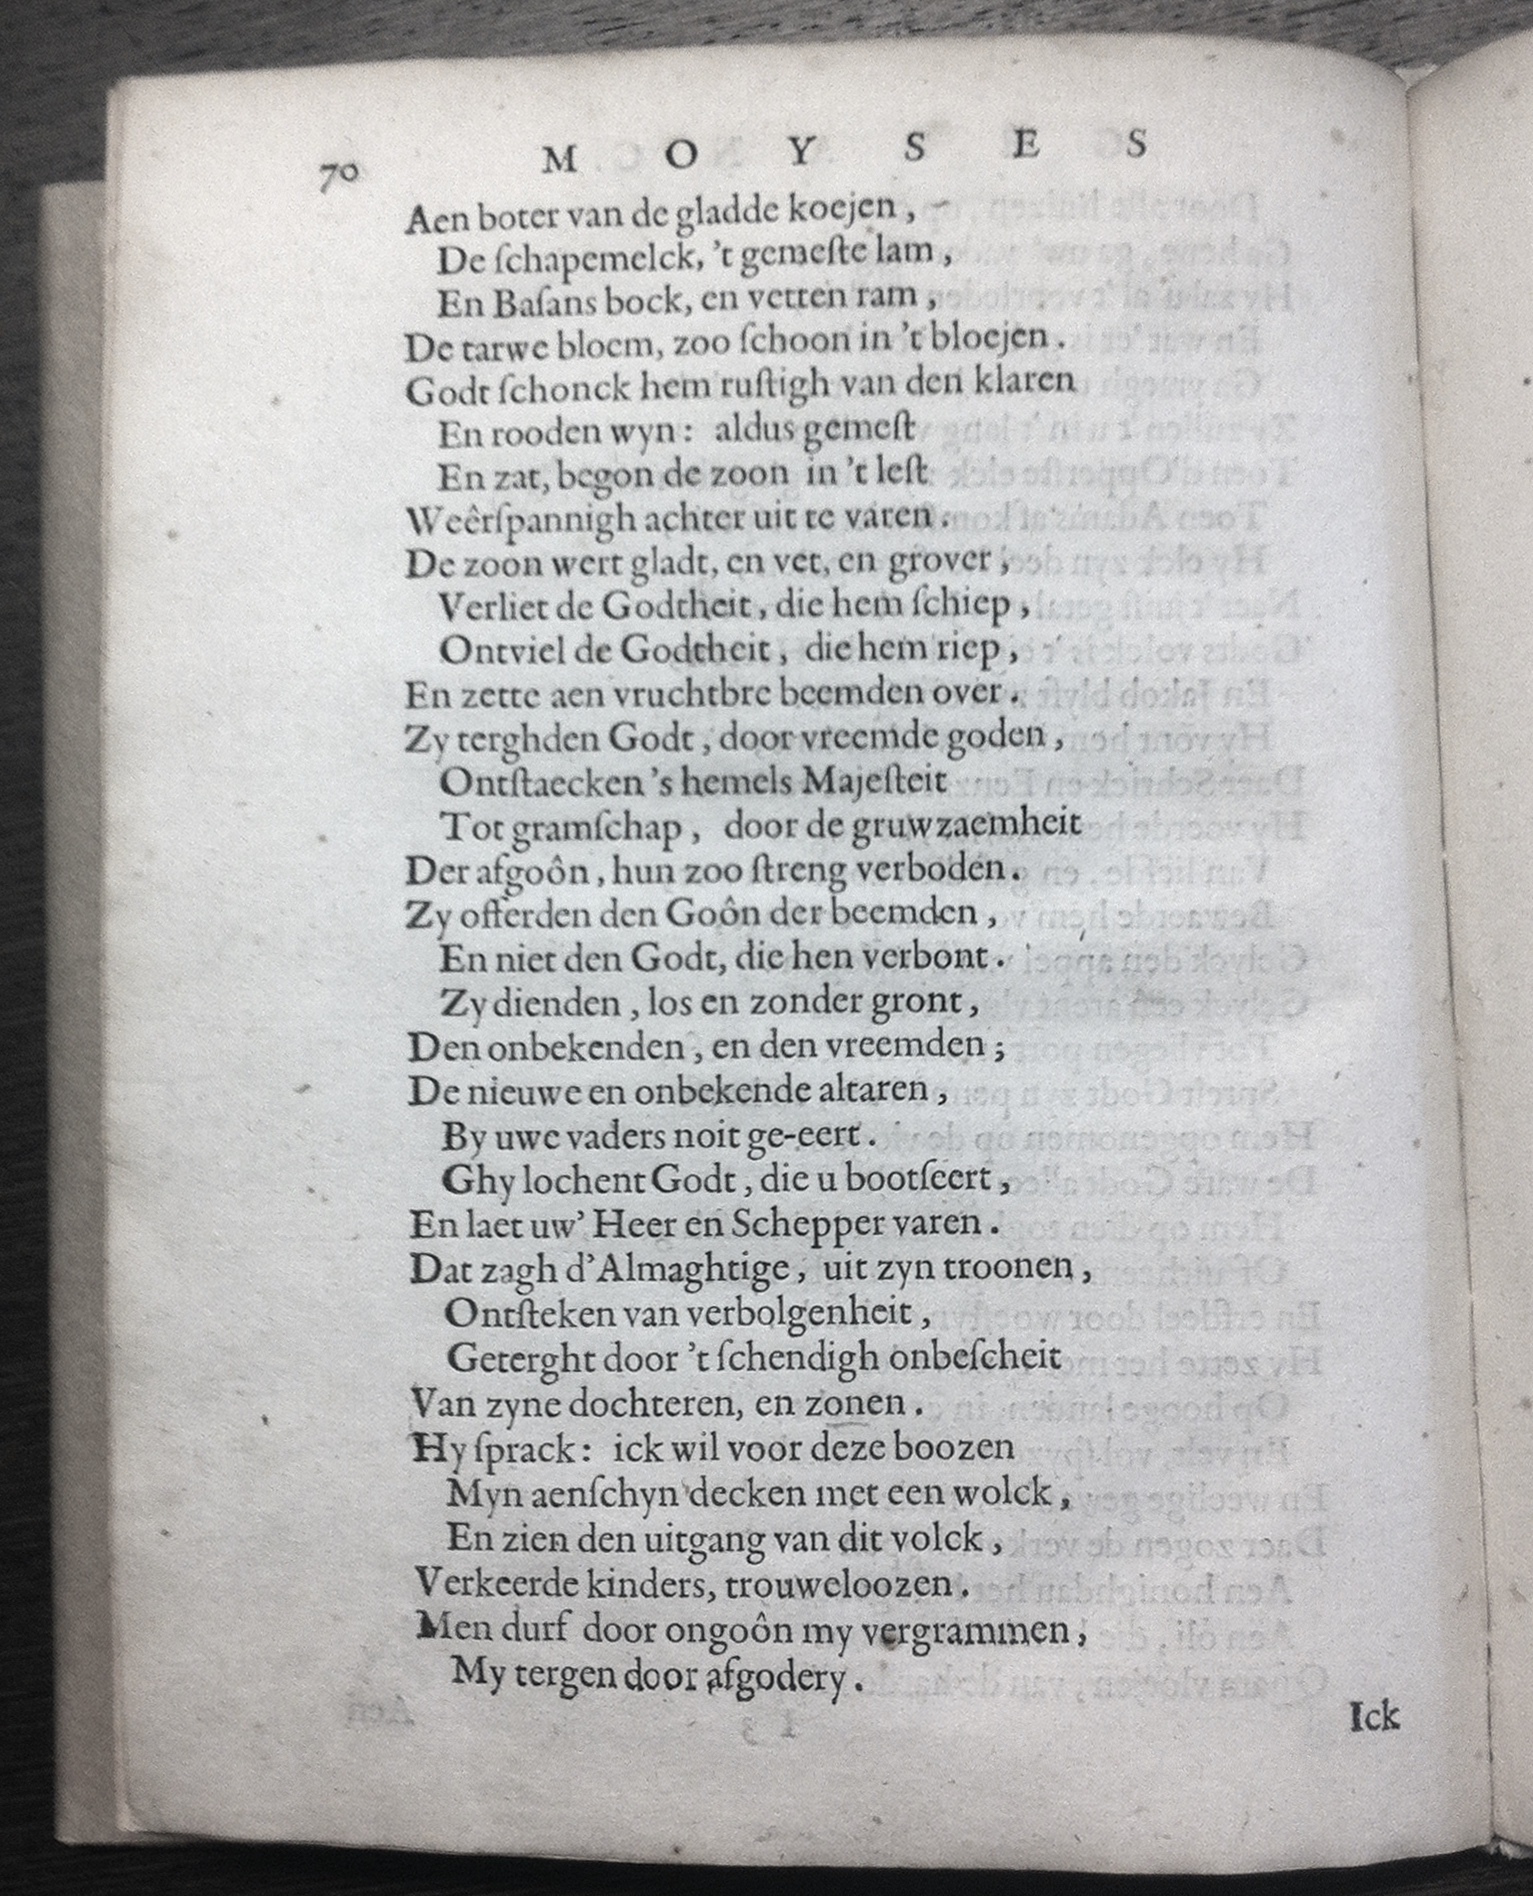 70 M O Y S E S
Aen boter van de gladde koejen,
De ſchapemelck, 't gemeſte lam,
En Baſans bock, en vetten ram,
De tarwe bloem, zoo ſchoon in 't bloejen.
Godt ſchonck hem ruſtigh van den klaren
En rooden wyn: aldus gemeſt
En zat, begon de zoon in 't leſt
Weêrſpannigh achter uit te varen.
De zoon wert gladt, en vet, en grover,
Verliet de Godtheit, die hem ſchiep,
Ontviel de Godtheit, die hem riep,
En zette aen vruchtbre beemden over.
Zy terghden Godt, door vreemde goden,
Ontſtaecken 's hemels Majeſteit
Tot gramſchap, door de gruwzaemheit
Der afgoôn, hun zoo ſtreng verboden.
Zy offerden den Goôn der beemden,
En niet den Godt, die hen verbont.
Zy dienden, los en zonder gront,
Den onbekenden, en den vreemden;
De nieuwe en onbekende altaren,
By uwe vaders noit ge-eert.
Ghy lochent Godt, die u bootſeert,
En laet uw' Heer en Schepper varen.
Dat zagh d'Almaghtige, uit zyn troonen,
Ontſteken van verbolgenheit,
Geterght door 't ſchendigh onbeſcheit
Van zyne dochteren, en zonen.
Hy ſprack: ick wil voor deze boozen
Myn aenſchyn decken met een wolck,
En zien den uitgang van dit volck,
Verkeerde kinders, trouweloozen.
Men durf door ongoôn my vergrammen,
My tergen door afgodery.
Ick